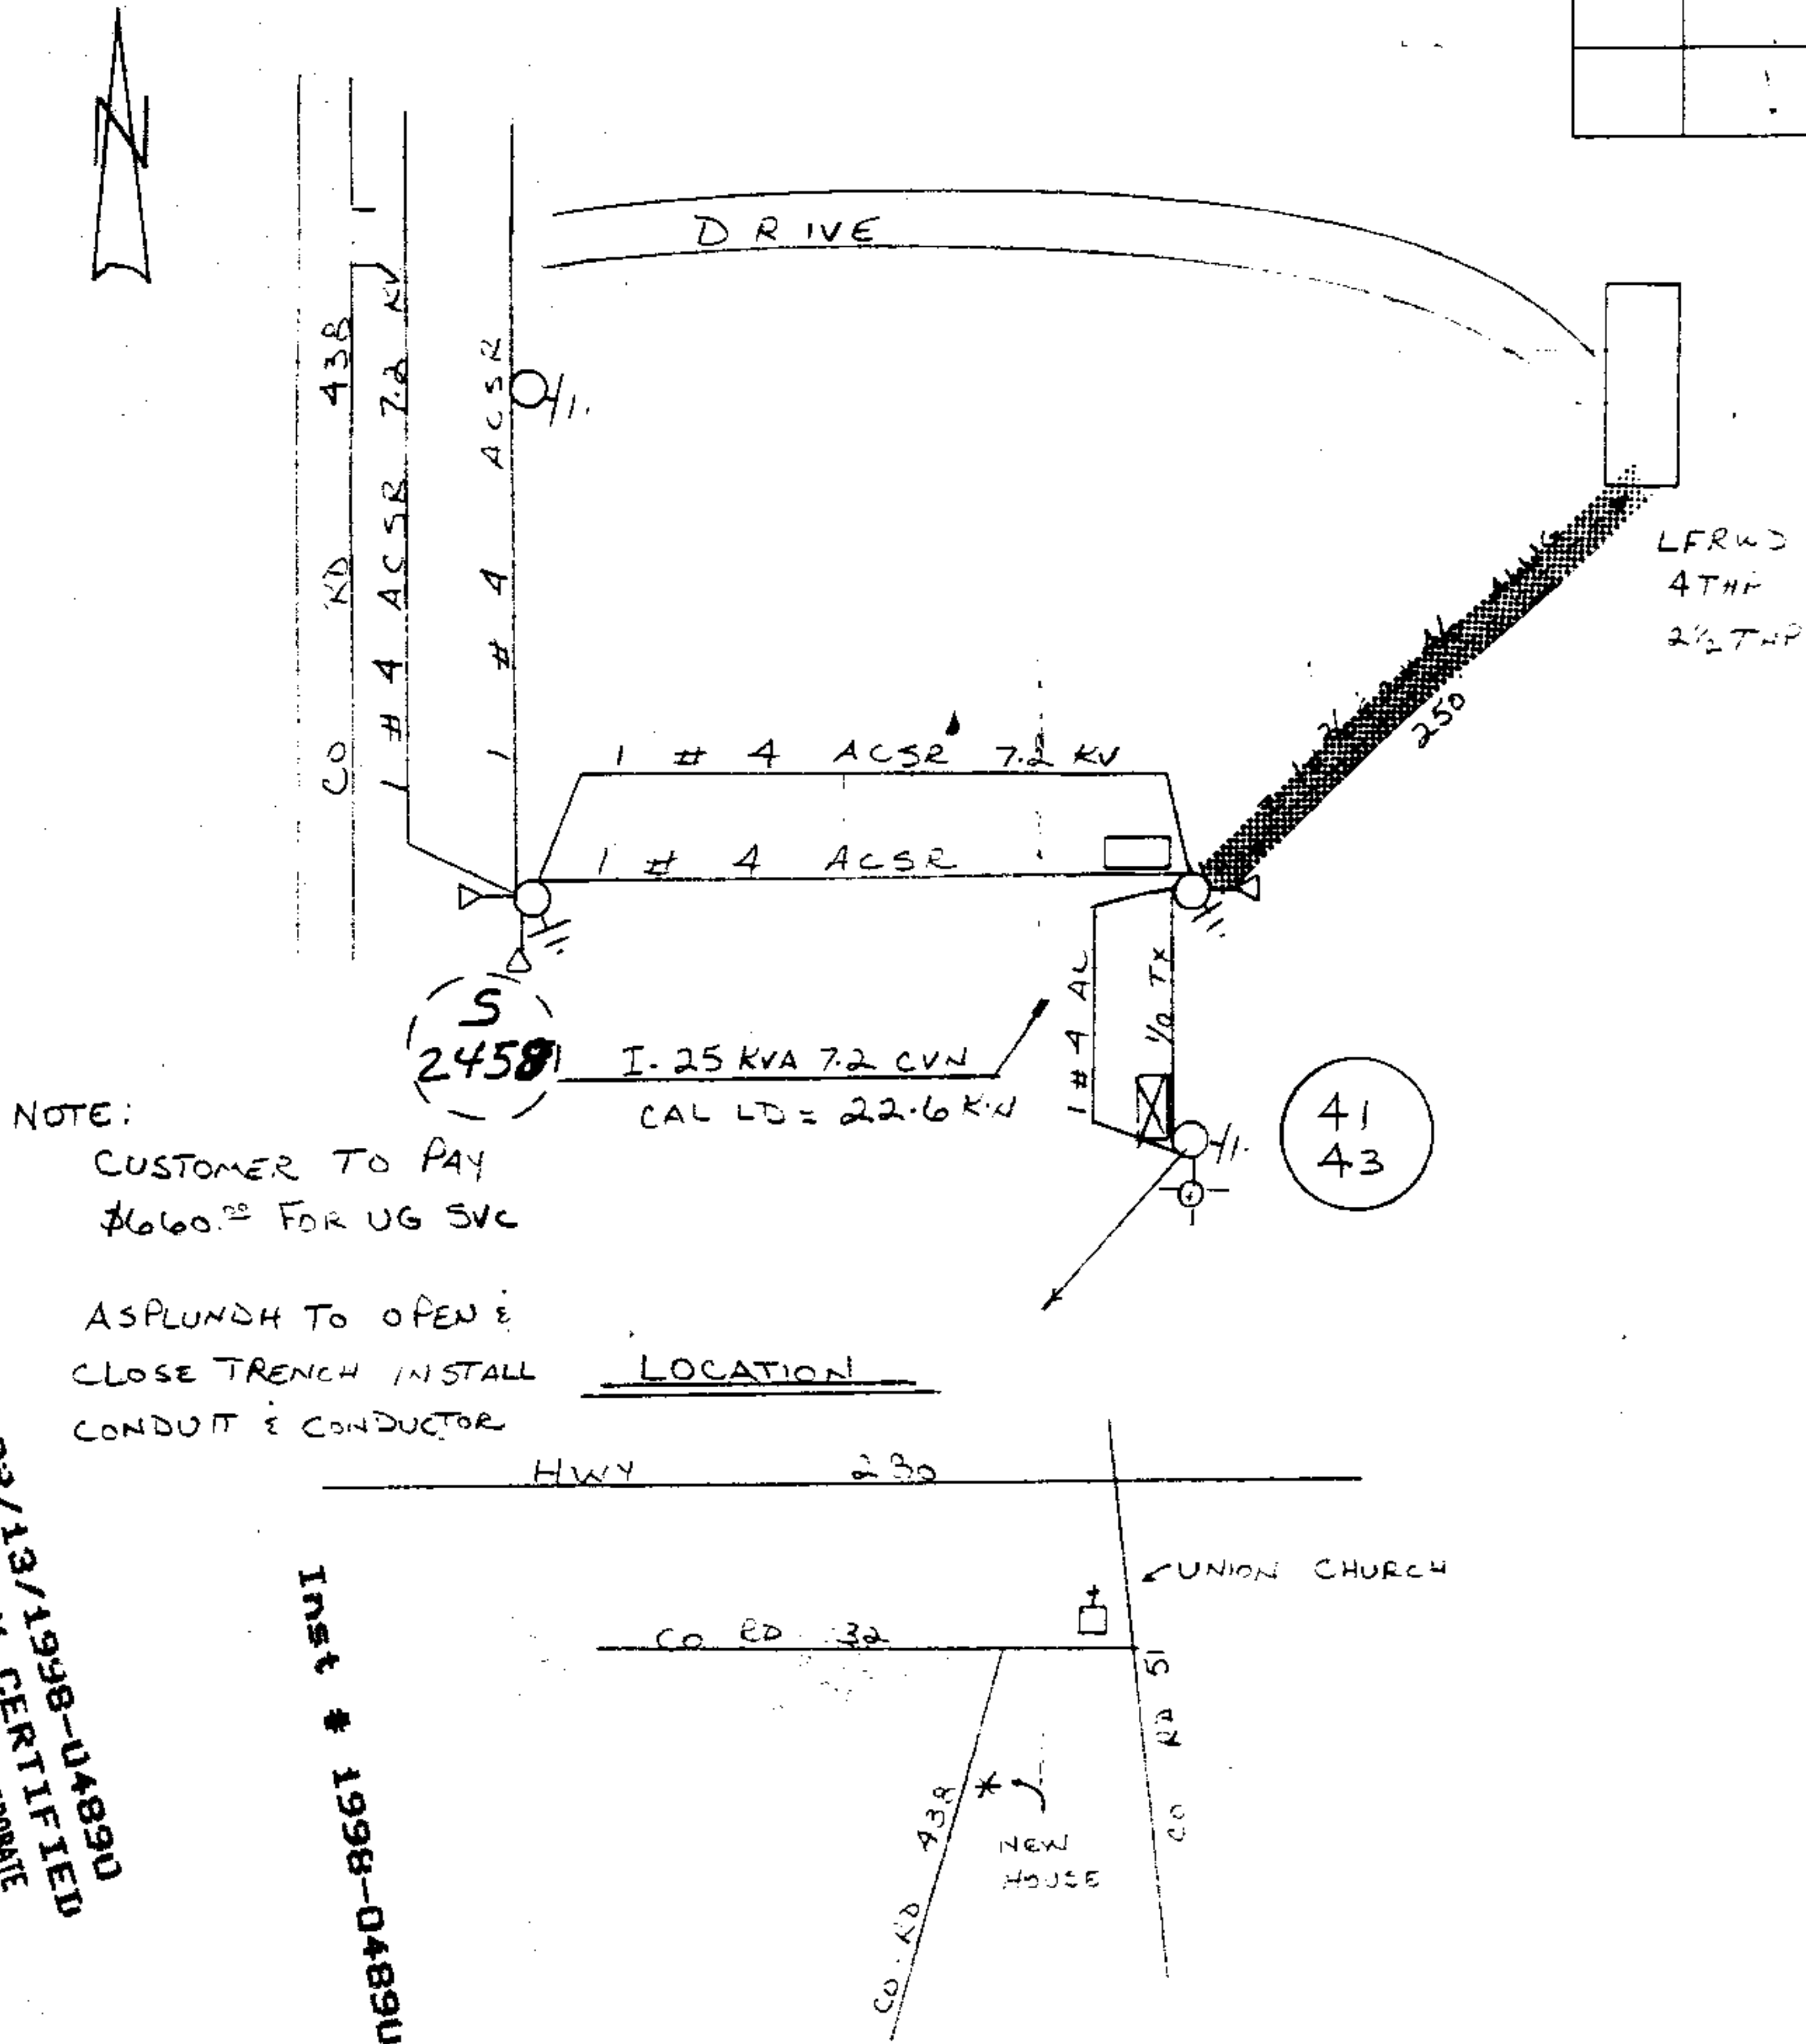 N
DRIVE
CO RD 438
1 # 4 ACSR 7.2 KV
1 # 4 ACSR
1 # 4 ACSR 7.2 KV
1 # 4 ACSR
250
1 # 4 AL
1/0 TX
S
24581
I- 25 KVA 7.2 CVN
CAL LD = 22.6 KW
41
43
NOTE:
CUSTOMER TO PAY
$660.00 FOR UG SVC
ASPLUNDH TO OPEN &
CLOSE TRENCH INSTALL
CONDUIT & CONDUCTOR
LOCATION
HWY 230
UNION CHURCH
CO RD 32
CO RD 51
CO. RD 438
NEW
HOUSE
Inst # 1998-04890
/13/1998-04890
CERTIFIED